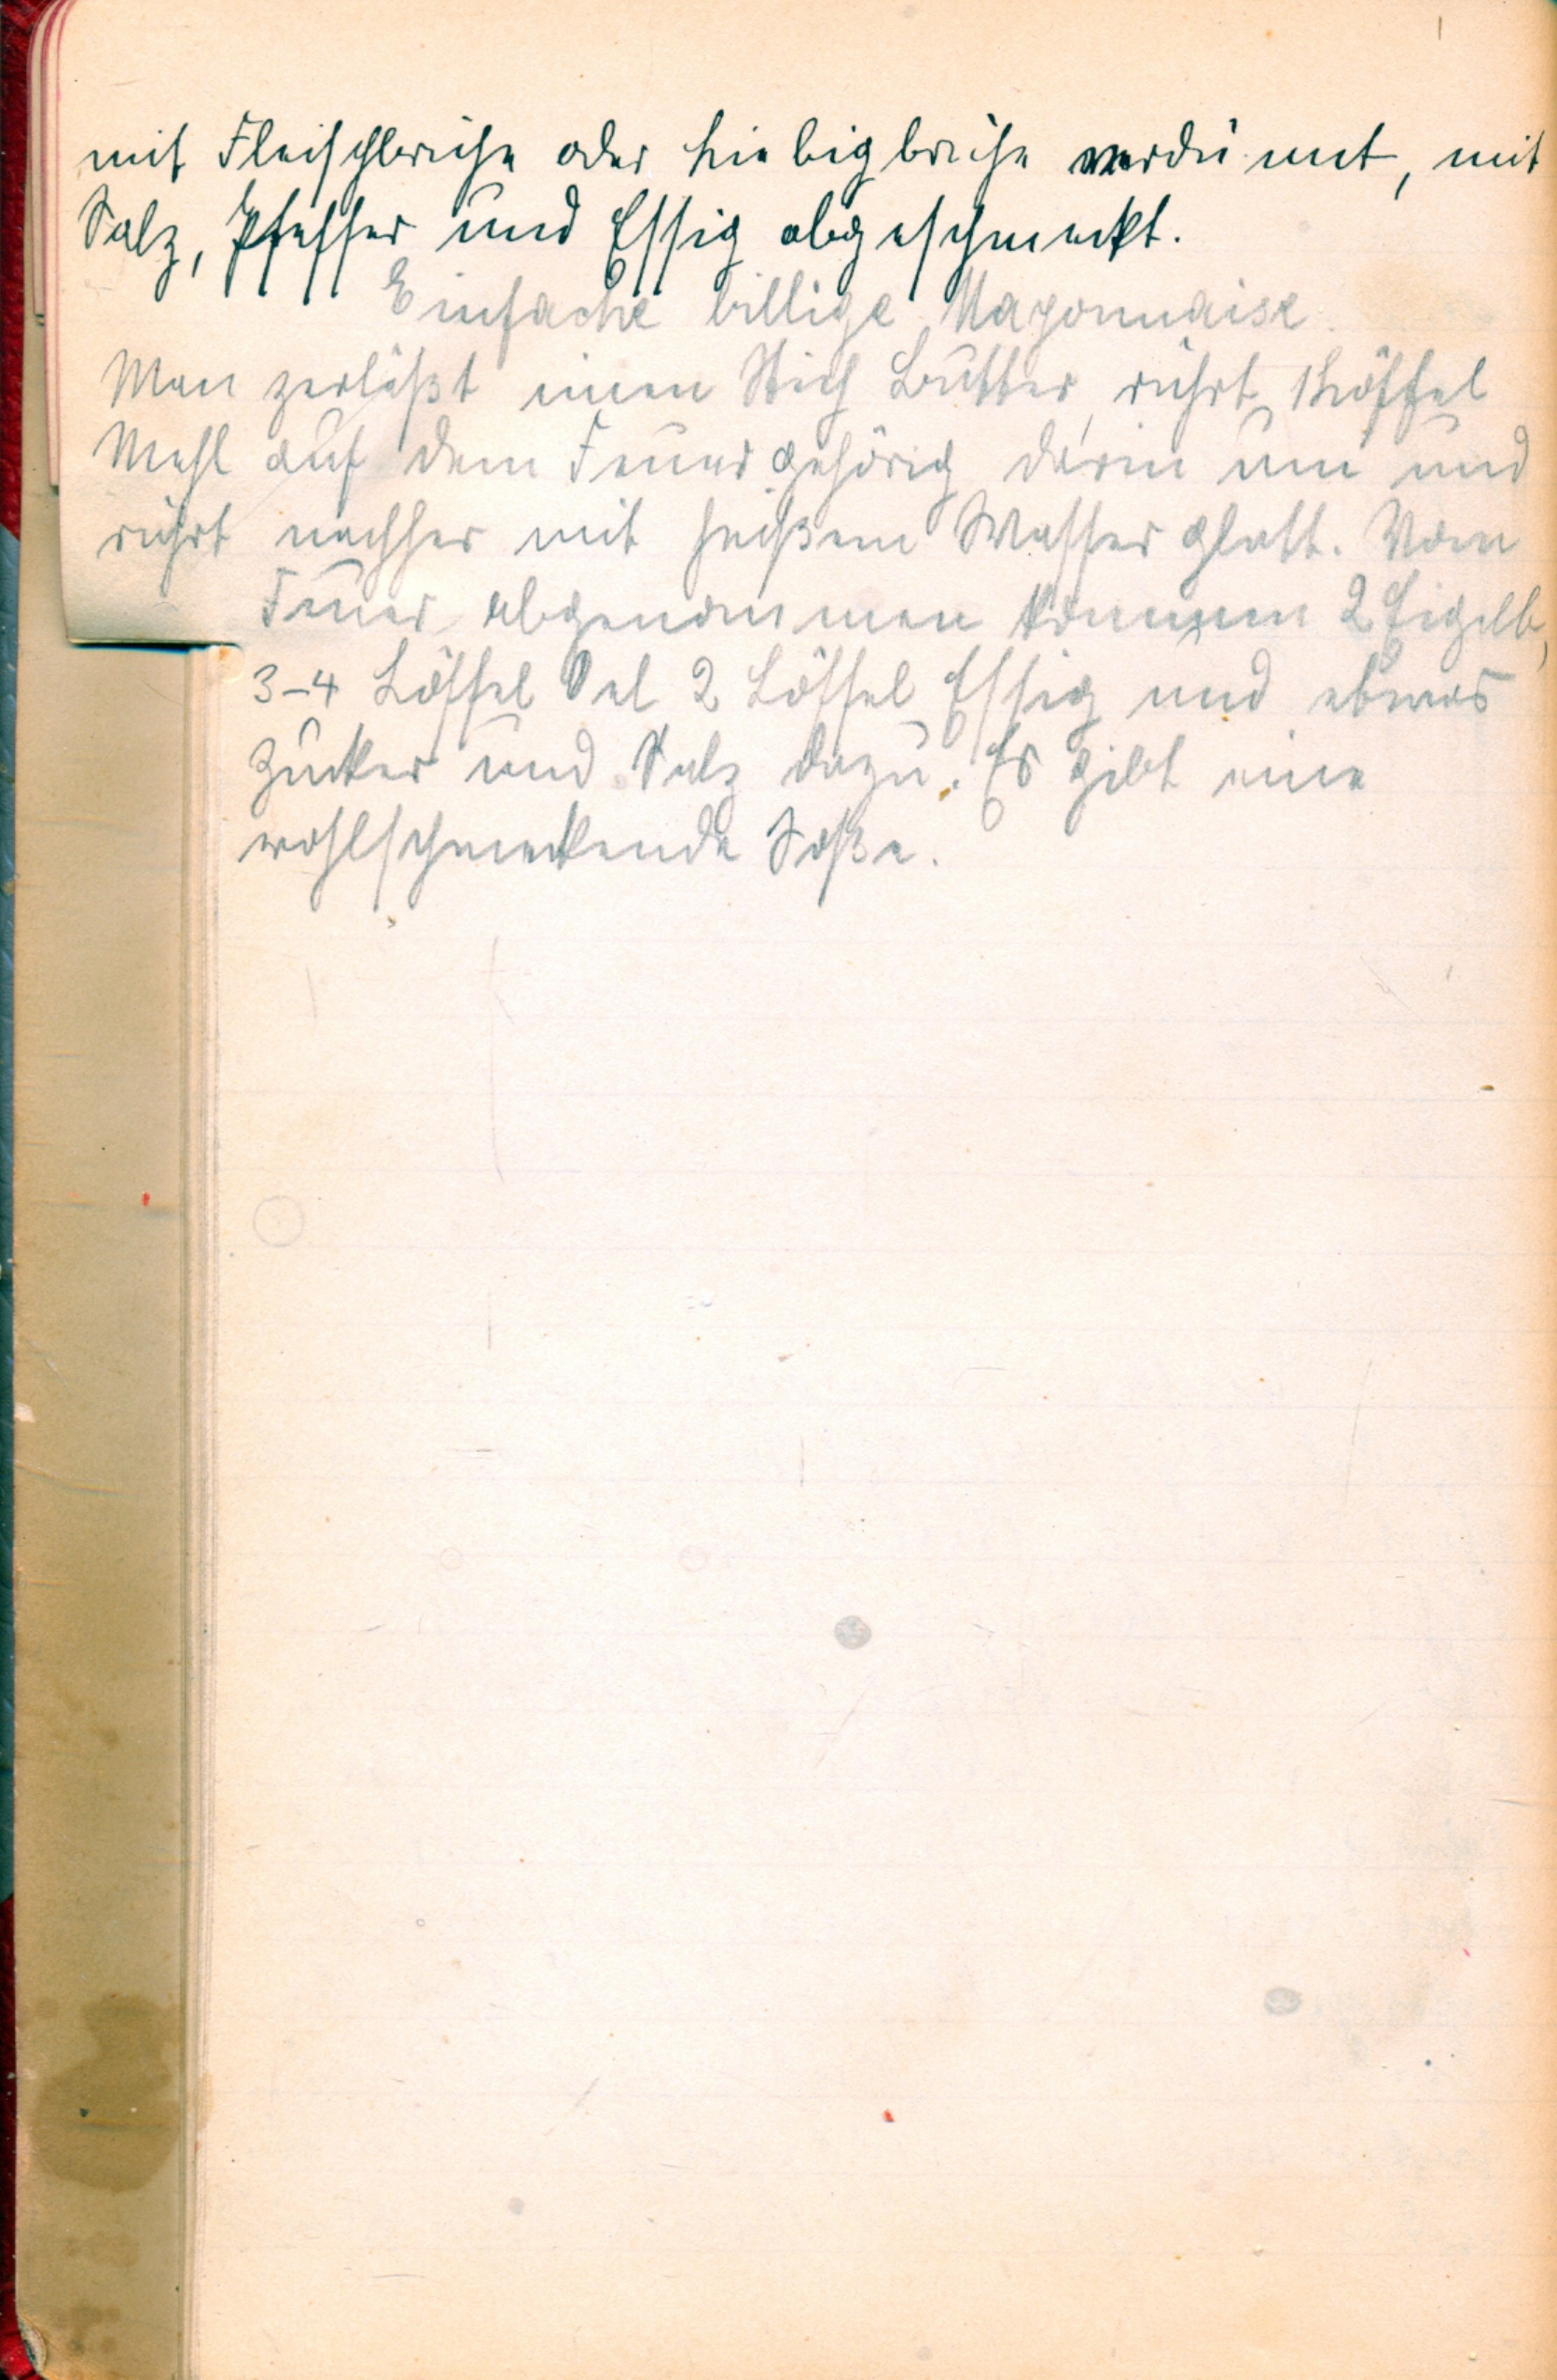 mit Fleischbrühe oder Liebigbrühe verdünnt, mit
Salz, Pfeffer und Essig abgeschmeckt.
Einfache billige Mayonnaise.
Man zerläßt einen Stich Butter, rührt 1 Löffel
Mehl auf dem Feuer gehörig darin um und
rührt nachher mit heißem Wasser glatt. Vom
Feuer abgenommen kommen 2 Eigelb,
3-4 Löffel Oel 2 Löffel Essig und etwas
Zucker und Salz dazu. Es gibt eine
wohlschmeckende Soße.